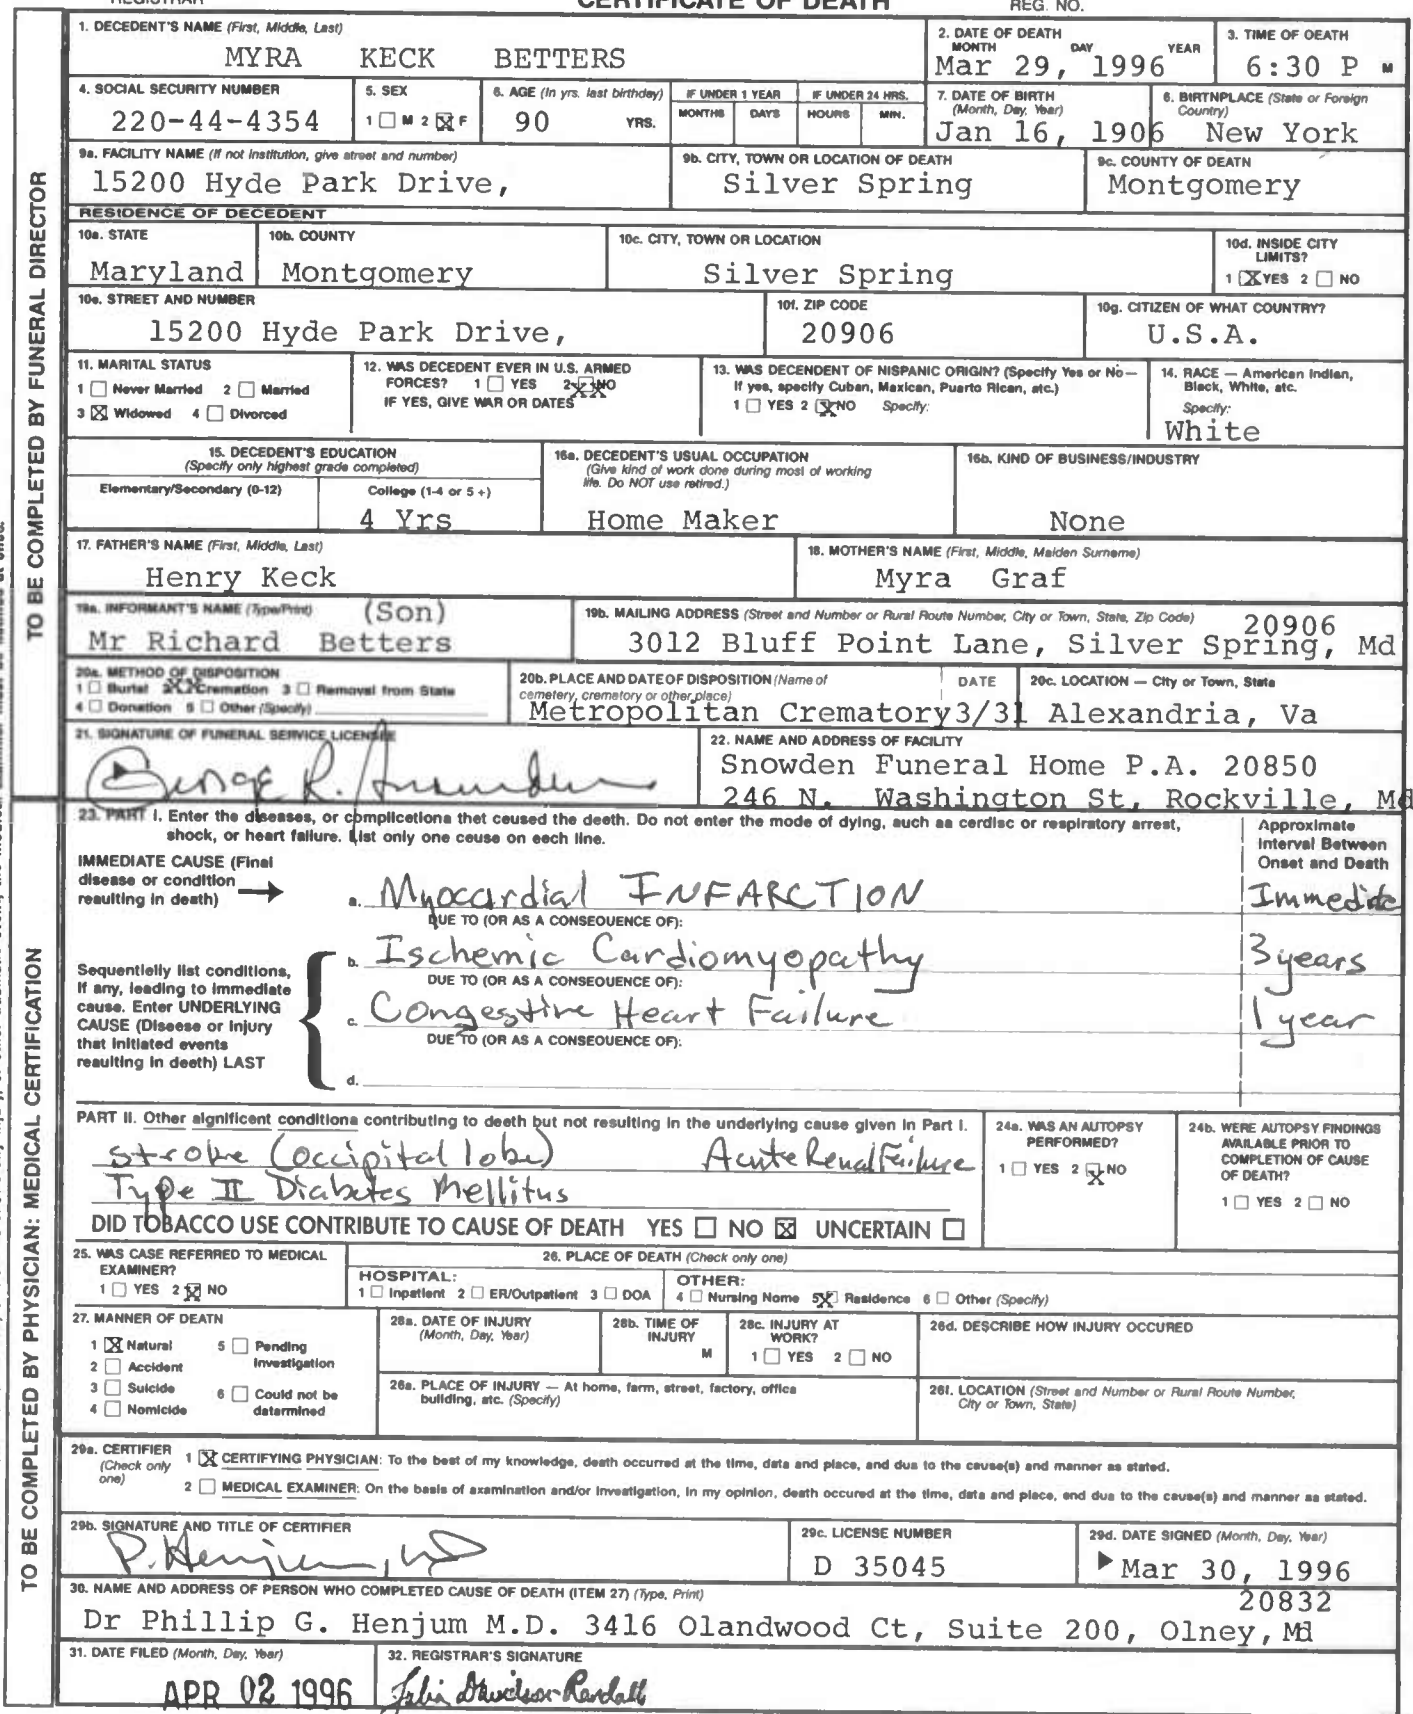 REGISTRAR CERTIFICATE OF DEATH REG. NO.
1. DECEDENT'S NAME (First, Middle, Last)
MYRA KECK BETTERS
2. DATE OF DEATH
MONTH DAY YEAR
Mar 29, 1996
3. TIME OF DEATH
6:30 P M
4. SOCIAL SECURITY NUMBER
220-44-4354
5. SEX
1 M 2 X F
6. AGE (In yrs. last birthday)
90 YRS.
IF UNDER 1 YEAR
MONTHS DAYS
IF UNDER 24 HRS.
HOURS MIN.
7. DATE OF BIRTH
(Month, Day, Year)
Jan 16, 1906
8. BIRTHPLACE (State or Foreign
Country)
New York
9a. FACILITY NAME (If not institution, give street and number)
15200 Hyde Park Drive,
9b. CITY, TOWN OR LOCATION OF DEATH
Silver Spring
9c. COUNTY OF DEATH
Montgomery
RESIDENCE OF DECEDENT
10a. STATE
Maryland
10b. COUNTY
Montgomery
10c. CITY, TOWN OR LOCATION
Silver Spring
10d. INSIDE CITY
LIMITS?
1 X YES 2 NO
10e. STREET AND NUMBER
15200 Hyde Park Drive,
10f. ZIP CODE
20906
10g. CITIZEN OF WHAT COUNTRY?
U.S.A.
11. MARITAL STATUS
1 Never Married 2 Married
3 X Widowed 4 Divorced
12. WAS DECEDENT EVER IN U.S. ARMED
FORCES? 1 YES 2 XX NO
IF YES, GIVE WAR OR DATES
13. WAS DECENDENT OF HISPANIC ORIGIN? (Specify Yes or No—
If yes, specify Cuban, Mexican, Puerto Rican, etc.)
1 YES 2 X NO Specify:
14. RACE — American Indian,
Black, White, etc.
Specify:
White
15. DECEDENT'S EDUCATION
(Specify only highest grade completed)
Elementary/Secondary (0-12) College (1-4 or 5 +)
4 Yrs
16a. DECEDENT'S USUAL OCCUPATION
(Give kind of work done during most of working
life. Do NOT use retired.)
Home Maker
16b. KIND OF BUSINESS/INDUSTRY
None
17. FATHER'S NAME (First, Middle, Last)
Henry Keck
18. MOTHER'S NAME (First, Middle, Maiden Surname)
Myra Graf
19a. INFORMANT'S NAME (Type/Print) (Son)
Mr Richard Betters
19b. MAILING ADDRESS (Street and Number or Rural Route Number, City or Town, State, Zip Code)
20906
3012 Bluff Point Lane, Silver Spring, Md
20a. METHOD OF DISPOSITION
1 Burial 2 XX Cremation 3 Removal from State
4 Donation 5 Other (Specify)
20b. PLACE AND DATE OF DISPOSITION (Name of
cemetery, crematory or other place) DATE
Metropolitan Crematory 3/31
20c. LOCATION — City or Town, State
Alexandria, Va
21. SIGNATURE OF FUNERAL SERVICE LICENSEE
George R.
22. NAME AND ADDRESS OF FACILITY
Snowden Funeral Home P.A. 20850
246 N. Washington St, Rockville, Md
23. PART I. Enter the diseases, or complications that caused the death. Do not enter the mode of dying, such as cardiac or respiratory arrest,
shock, or heart failure. List only one cause on each line.
Approximate
Interval Between
Onset and Death
IMMEDIATE CAUSE (Final
disease or condition
resulting in death)
a. Myocardial INFARCTION Immediate
DUE TO (OR AS A CONSEQUENCE OF):
b. Ischemic Cardiomyopathy 3 years
DUE TO (OR AS A CONSEQUENCE OF):
Sequentially list conditions,
if any, leading to immediate
cause. Enter UNDERLYING
CAUSE (Disease or injury
that initiated events
resulting in death) LAST
c. Congestive Heart Failure 1 year
DUE TO (OR AS A CONSEQUENCE OF):
d.
PART II. Other significant conditions contributing to death but not resulting in the underlying cause given in Part I.
Stroke (occipital lobe) Acute Renal Failure
Type II Diabetes Mellitus
DID TOBACCO USE CONTRIBUTE TO CAUSE OF DEATH YES NO X UNCERTAIN
24a. WAS AN AUTOPSY
PERFORMED?
1 YES 2 X NO
24b. WERE AUTOPSY FINDINGS
AVAILABLE PRIOR TO
COMPLETION OF CAUSE
OF DEATH?
1 YES 2 NO
25. WAS CASE REFERRED TO MEDICAL
EXAMINER?
1 YES 2 X NO
26. PLACE OF DEATH (Check only one)
HOSPITAL:
1 Inpatient 2 ER/Outpatient 3 DOA
OTHER:
4 Nursing Home 5 X Residence 6 Other (Specify)
27. MANNER OF DEATH
1 X Natural 5 Pending
Investigation
2 Accident
3 Suicide 6 Could not be
determined
4 Homicide
28a. DATE OF INJURY
(Month, Day, Year)
28b. TIME OF
INJURY
M
28c. INJURY AT
WORK?
1 YES 2 NO
28d. DESCRIBE HOW INJURY OCCURED
28e. PLACE OF INJURY — At home, farm, street, factory, office
building, etc. (Specify)
28f. LOCATION (Street and Number or Rural Route Number,
City or Town, State)
29a. CERTIFIER
(Check only
one)
1 X CERTIFYING PHYSICIAN: To the best of my knowledge, death occurred at the time, date and place, and due to the cause(s) and manner as stated.
2 MEDICAL EXAMINER: On the basis of examination and/or investigation, in my opinion, death occured at the time, date and place, and due to the cause(s) and manner as stated.
29b. SIGNATURE AND TITLE OF CERTIFIER
P. Henjum, MD
29c. LICENSE NUMBER
D 35045
29d. DATE SIGNED (Month, Day, Year)
Mar 30, 1996
30. NAME AND ADDRESS OF PERSON WHO COMPLETED CAUSE OF DEATH (ITEM 27) (Type, Print)
20832
Dr Phillip G. Henjum M.D. 3416 Olandwood Ct, Suite 200, Olney, Md
31. DATE FILED (Month, Day, Year)
APR 02 1996
32. REGISTRAR'S SIGNATURE
Davidson-Randall
TO BE COMPLETED BY FUNERAL DIRECTOR
TO BE COMPLETED BY PHYSICIAN: MEDICAL CERTIFICATION